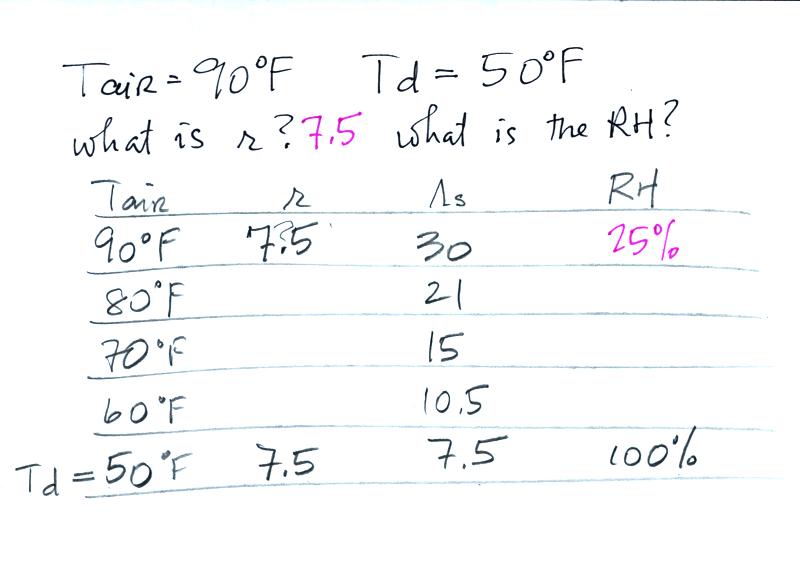 Tair = 90°F Td = 50°F
what is r? 7.5 what is the RH?
Tair r rs RH
90°F 7.5 30 25%
80°F 21
70°F 15
60°F 10.5
Td = 50°F 7.5 7.5 100%